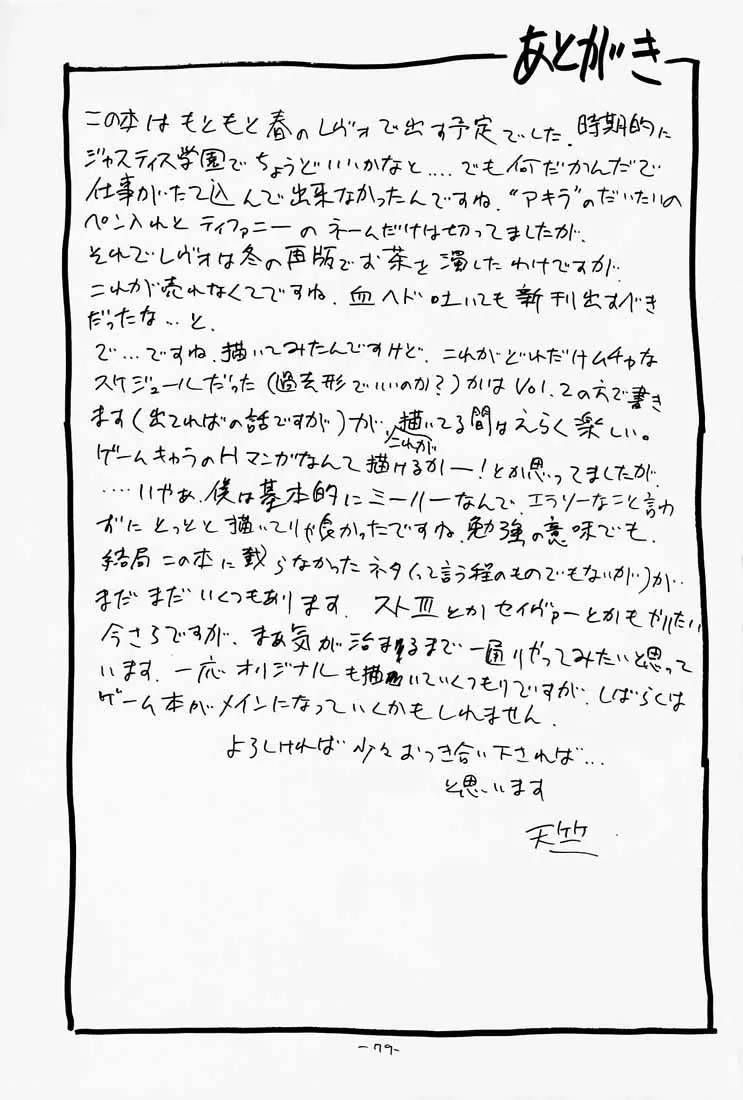 あとがき
この本はもともと春のレヴォで出す予定でした。時期的に
ジャスティス学園でちょうどいいかなと....でも何だかんだで
仕事がたて込んで出来なかったんですね。“アキラ”のだいたいの
ペン入れとティファニーのネームだけは切ってましたが。
それでレヴォは冬の再版でお茶を濁したわけですが
これが売れなくてですね。血ヘド吐いても新刊出すべき
だったな…と。
で…ですね。描いてみたんですけど、これがどれだけムチャな
スケジュールだった(過去形でいいのか?)かはVol.2の方で書き
ます(出てればの話ですが)が、これが描いてる間はえらく楽しい。
ゲームキャラのHマンガなんて描けるかー!とか思ってましたが、
....いやぁ、僕は基本的にミーハーなんで、エラソーなこと言わ
ずにとっとと描いてりゃ良かったですね。勉強の意味でも。
結局この本に載らなかったネタ(って言う程のものでもないが)が
まだまだいくつもあります。ストⅢとかセイヴァーとかもやりたい
今さらですが、まぁ気が治まるまで一通りやってみたいと思って
います。一応オリジナルも描いていくつもりですが、しばらくは
ゲーム本がメインになっていくかもしれません。
よろしければ少々おつき合い下されば…
と思います
天竺
-79-